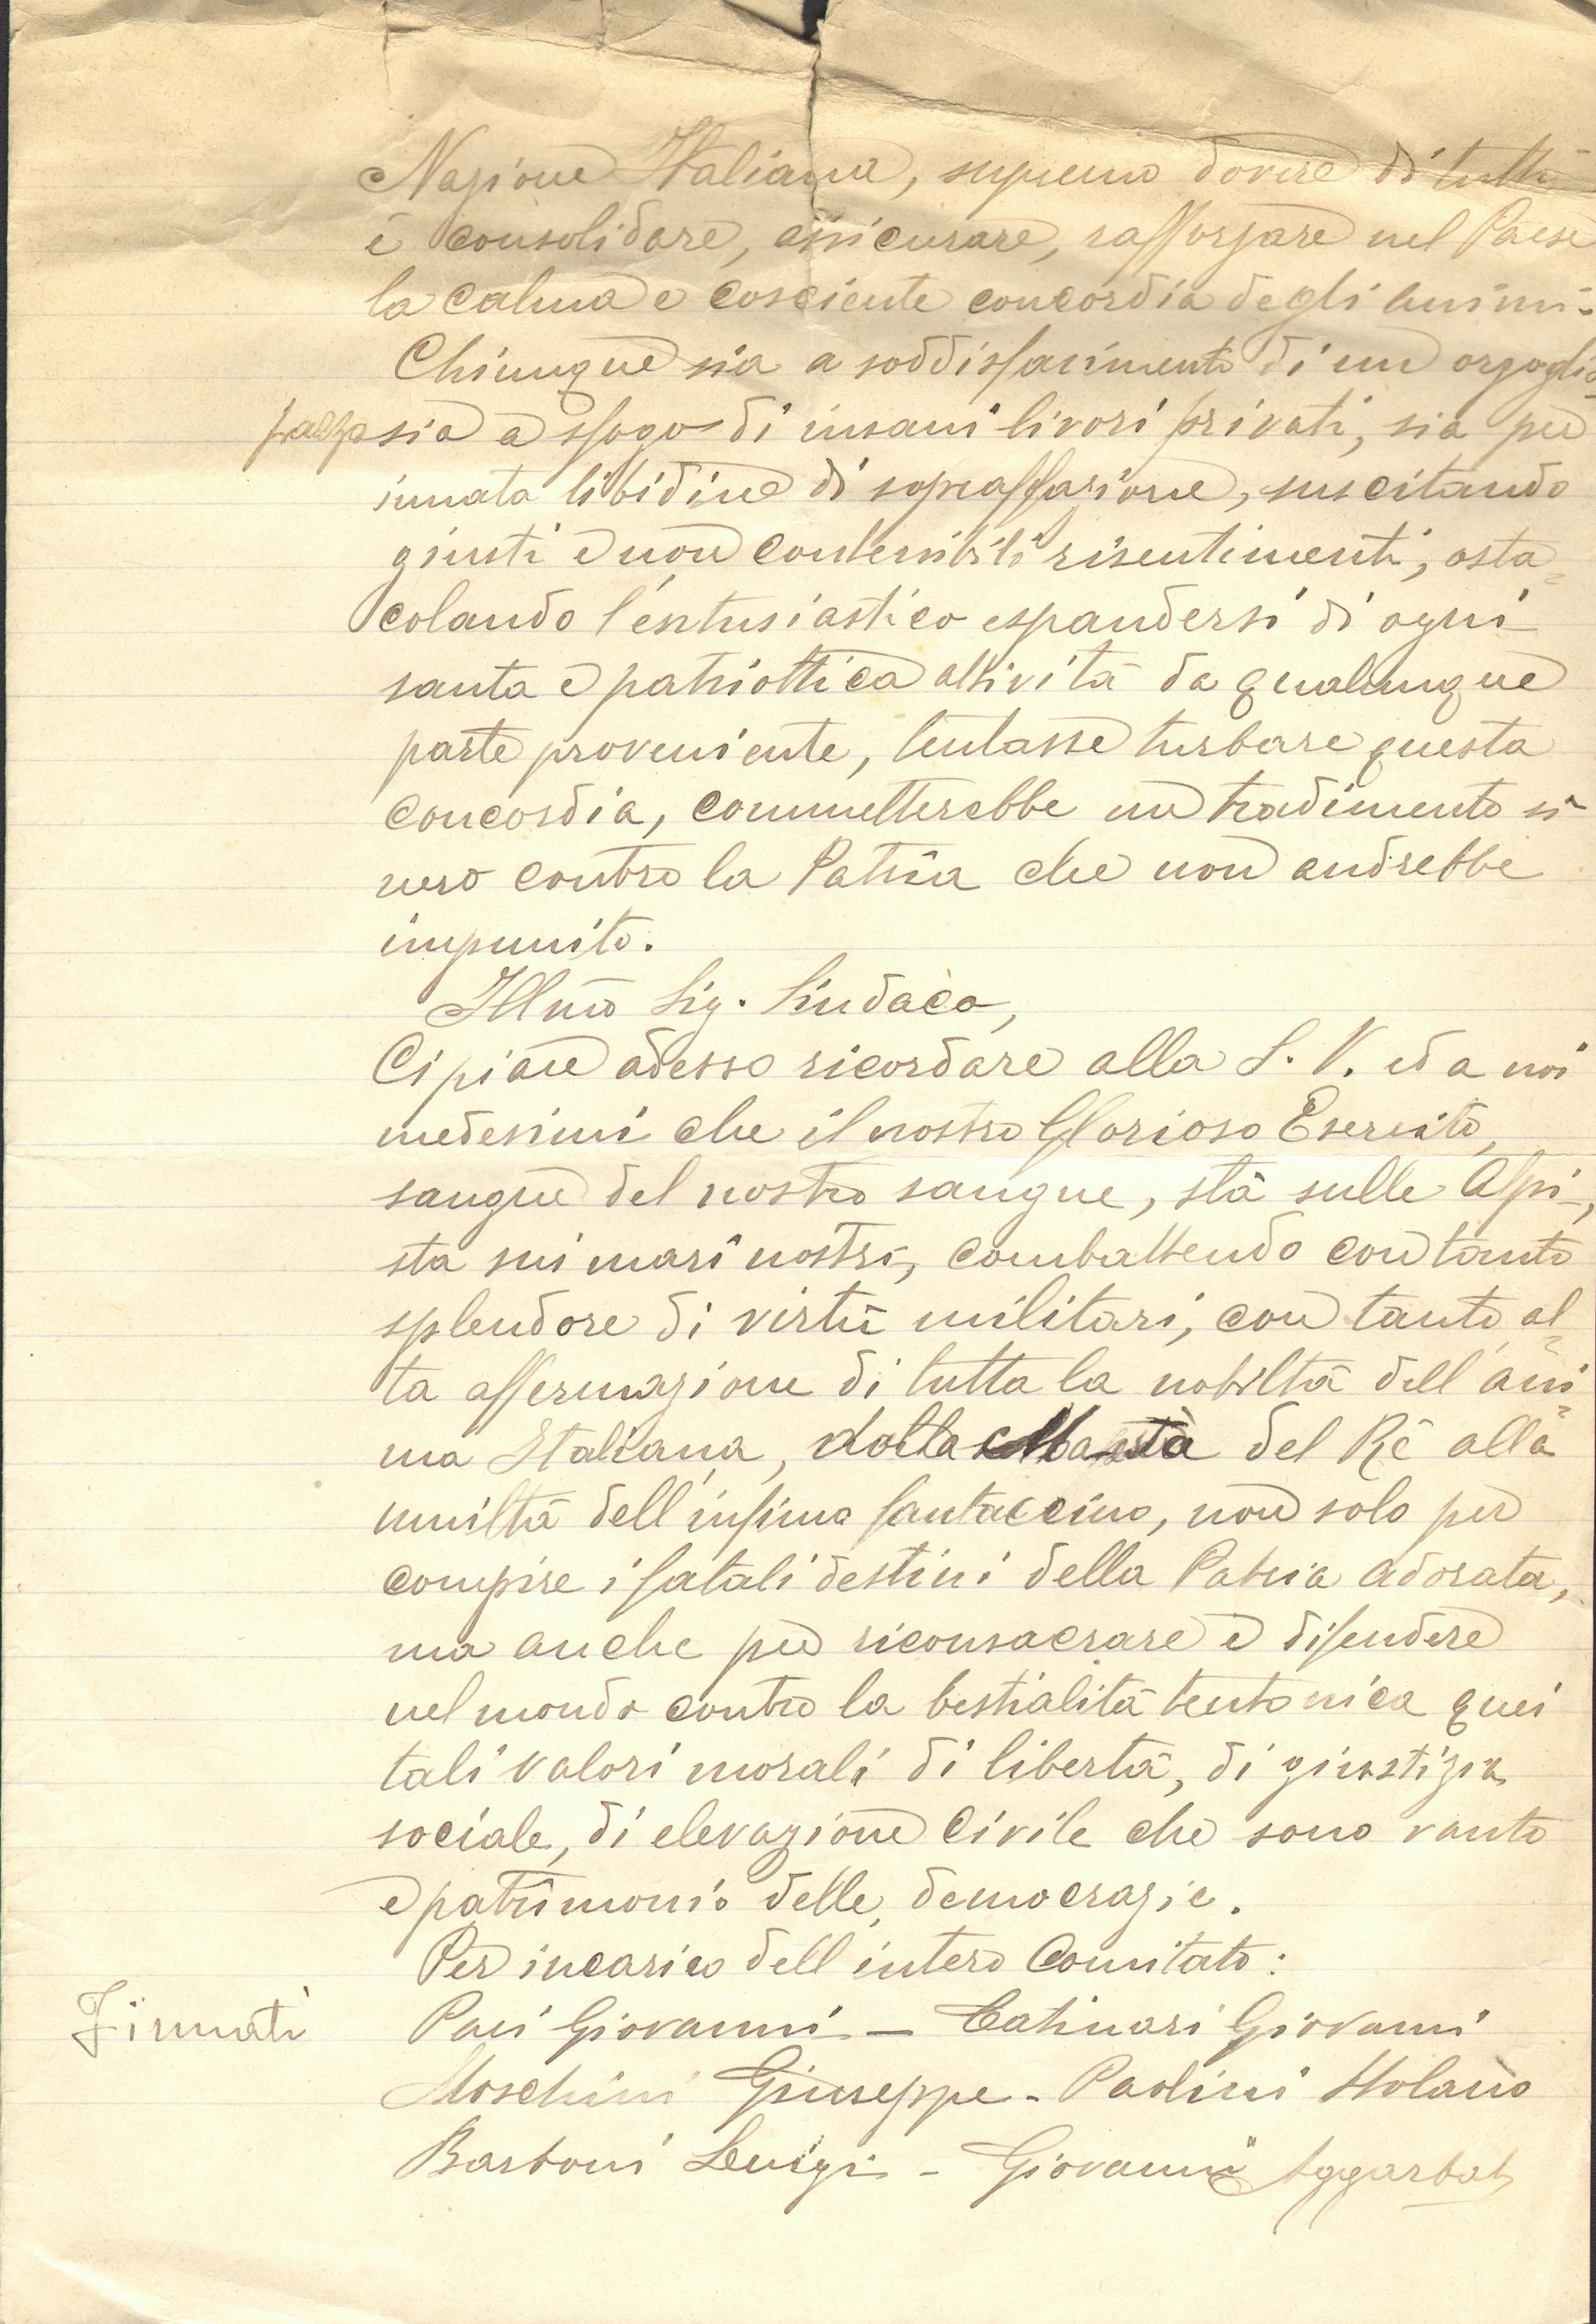 Nazione Italiana, supremo dovere di tutti
è consolidare, assicurare, rafforzare nel Paese
la calma e cosciente concordia degli animi.
Chiunque sia a soddisfacimento di un orgoglio
pazzo sia a sfogo di insani livori privati, sia per
innata libidine di sopraffazione, suscitando
giusti e non contenibili risentimenti, osta=
colando l'entusiastico espandersi di ogni
santa e patriottica attività da qualunque
parte proveniente, tentasse turbare questa
concordia, commetterebbe un tradimento sì
nero contro la Patria che non andrebbe
impunito.
Illmo Sig. Sindaco,
Ci piace adesso ricordare alla S. V. ed a noi
medesimi che il nostro Glorioso Esercito,
sangue del nostro sangue, stà sulle Alpi,
sta sui mari nostri, combattendo con tanto
splendore di virtù militari, con tanto al=
ta affermazione di tutta la nobiltà dell'ani=
ma Italiana, dalla Maestà del Rè alla
umiltà dell'infimo fantaccino, non solo per
compire i fatali destini della Patria adorata,
ma anche per riconsacrare e difendere
nel mondo contro la bestialità teutonica quei
tali valori morali di libertà, di giustizia
sociale, di elevazione civile che sono vanto
e patrimonio delle democrazie.
Per incarico dell'intero Comitato:
Firmati Paci Giovanni — Catinari Giovanni
Moschini Giuseppe - Paolini
Barboni Luigi - Giovanni